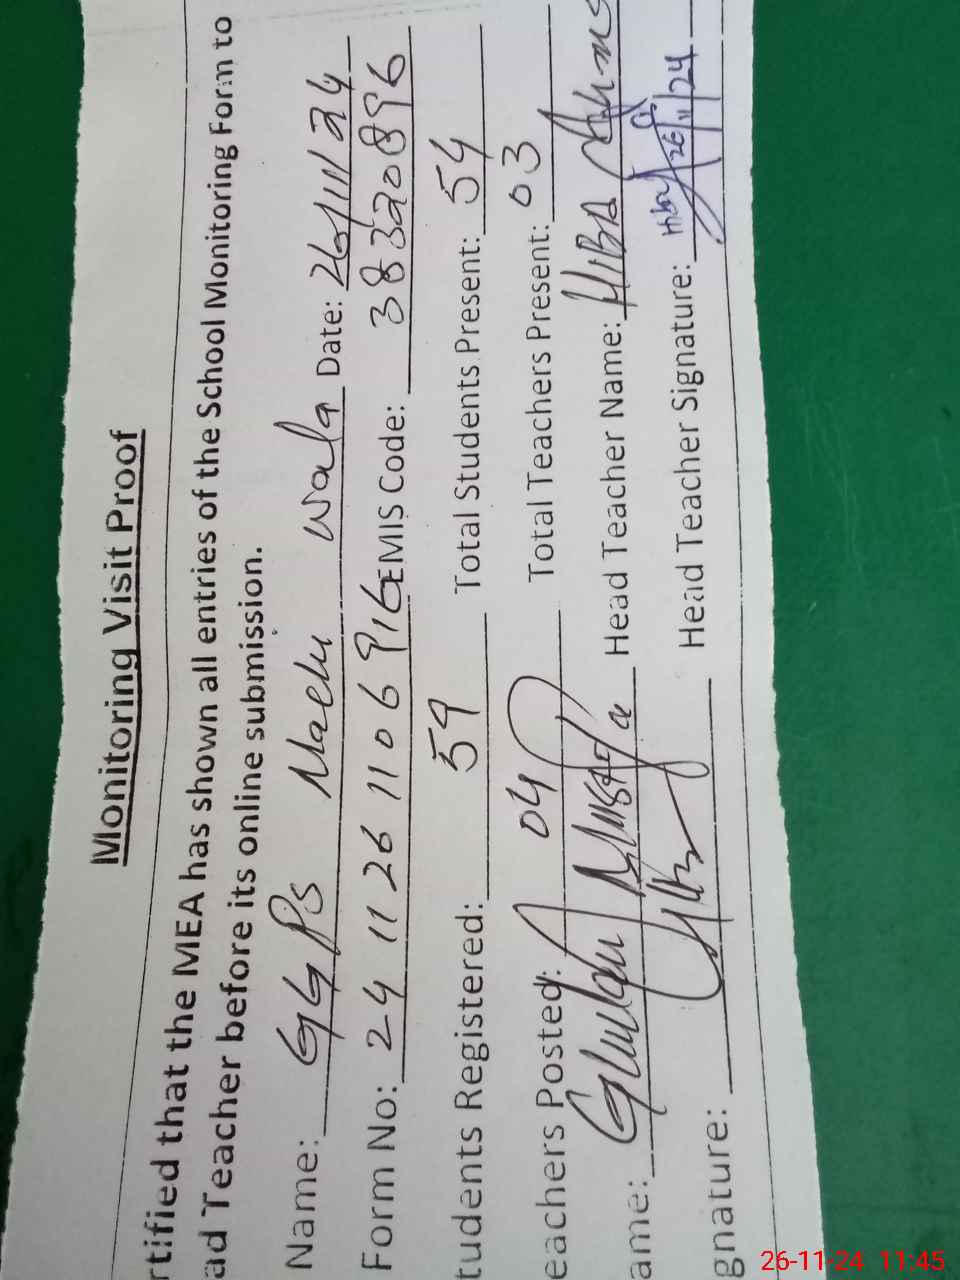 Monitoring Visit Proof
rtified that the MEA has shown all entries of the School Monitoring Form to
ad Teacher before its online submission.
Name: GGPS Machi wala Date: 26/11/24
Form No: 24 11 26 11 06 916 EMIS Code: 38320896
tudents Registered: 59 Total Students Present: 54
eachers Posted: 04 Total Teachers Present: 03
ame: Ghulam Mustafa Head Teacher Name: HIBA
gnature: Head Teacher Signature: 26/11/24
26-11-24 11:45